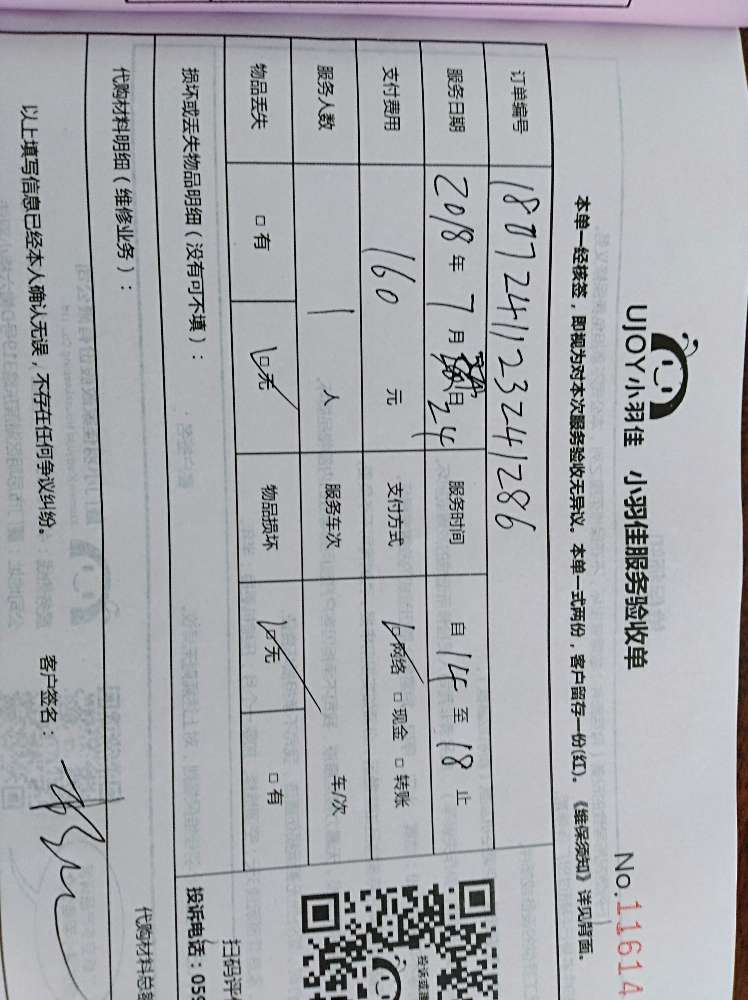 UJOY小羽佳 小羽佳服务验收单
No.11614
本单一经核签，即视为对本次服务验收无异议。本单一式两份，客户留存一份(红)。《维保须知》详见背面。
订单编号 1807241123241286
服务日期 2018年7月24日 服务时间 自14至18止
支付费用 160元 支付方式 ☑网络 □现金 □转账
服务人数 1人 服务车次 车/次
物品丢失 □有 ☑无 物品损坏 ☑无 □有
损坏或丢失物品明细（没有可不填）：
扫码评
投诉电话：059
代购材料明细（维修业务）：
代购材料总
以上填写信息已经本人确认无误，不存在任何争议纠纷。 客户签名：